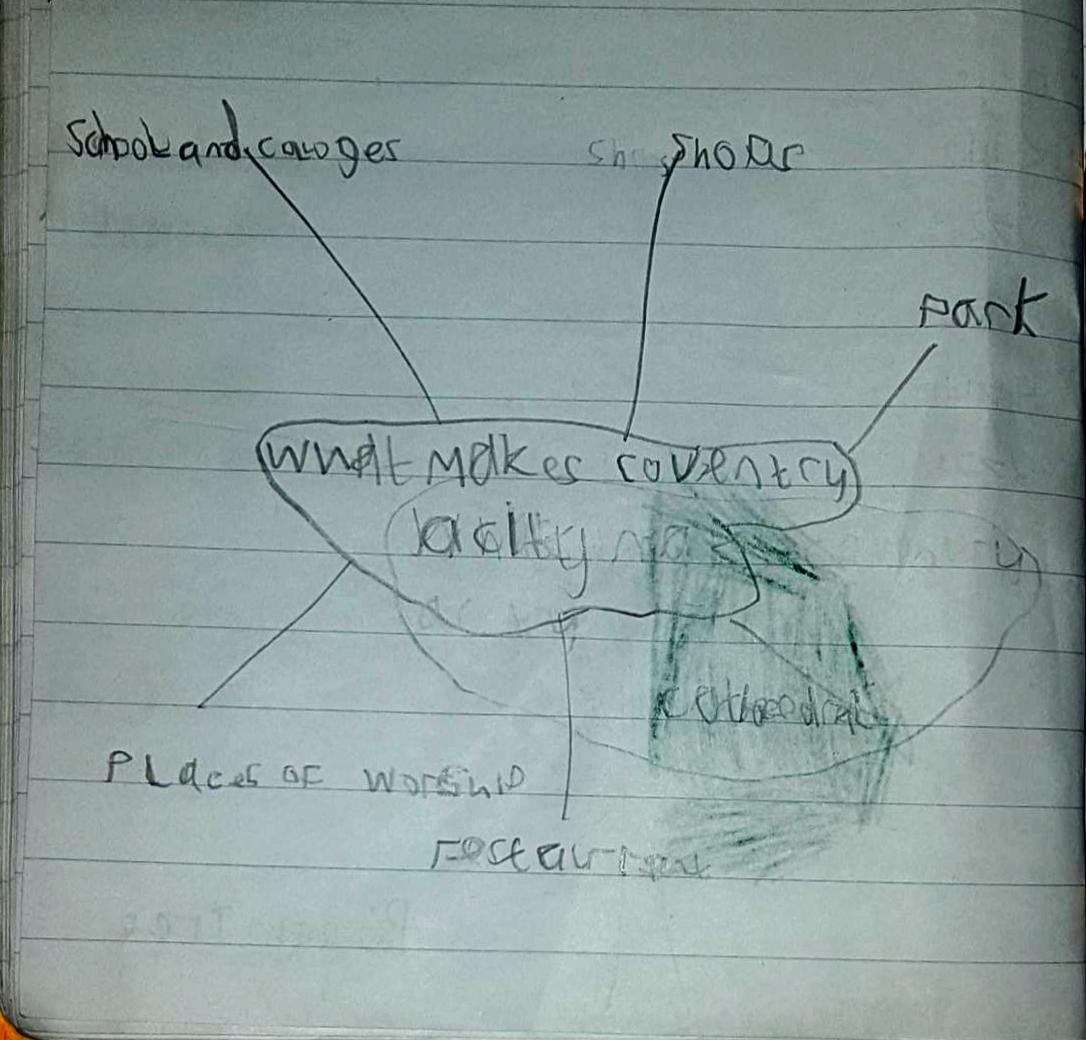 School and cauoges
shoar
park
What Makes coventry
a city
cothedral
Places of worship
restaurant